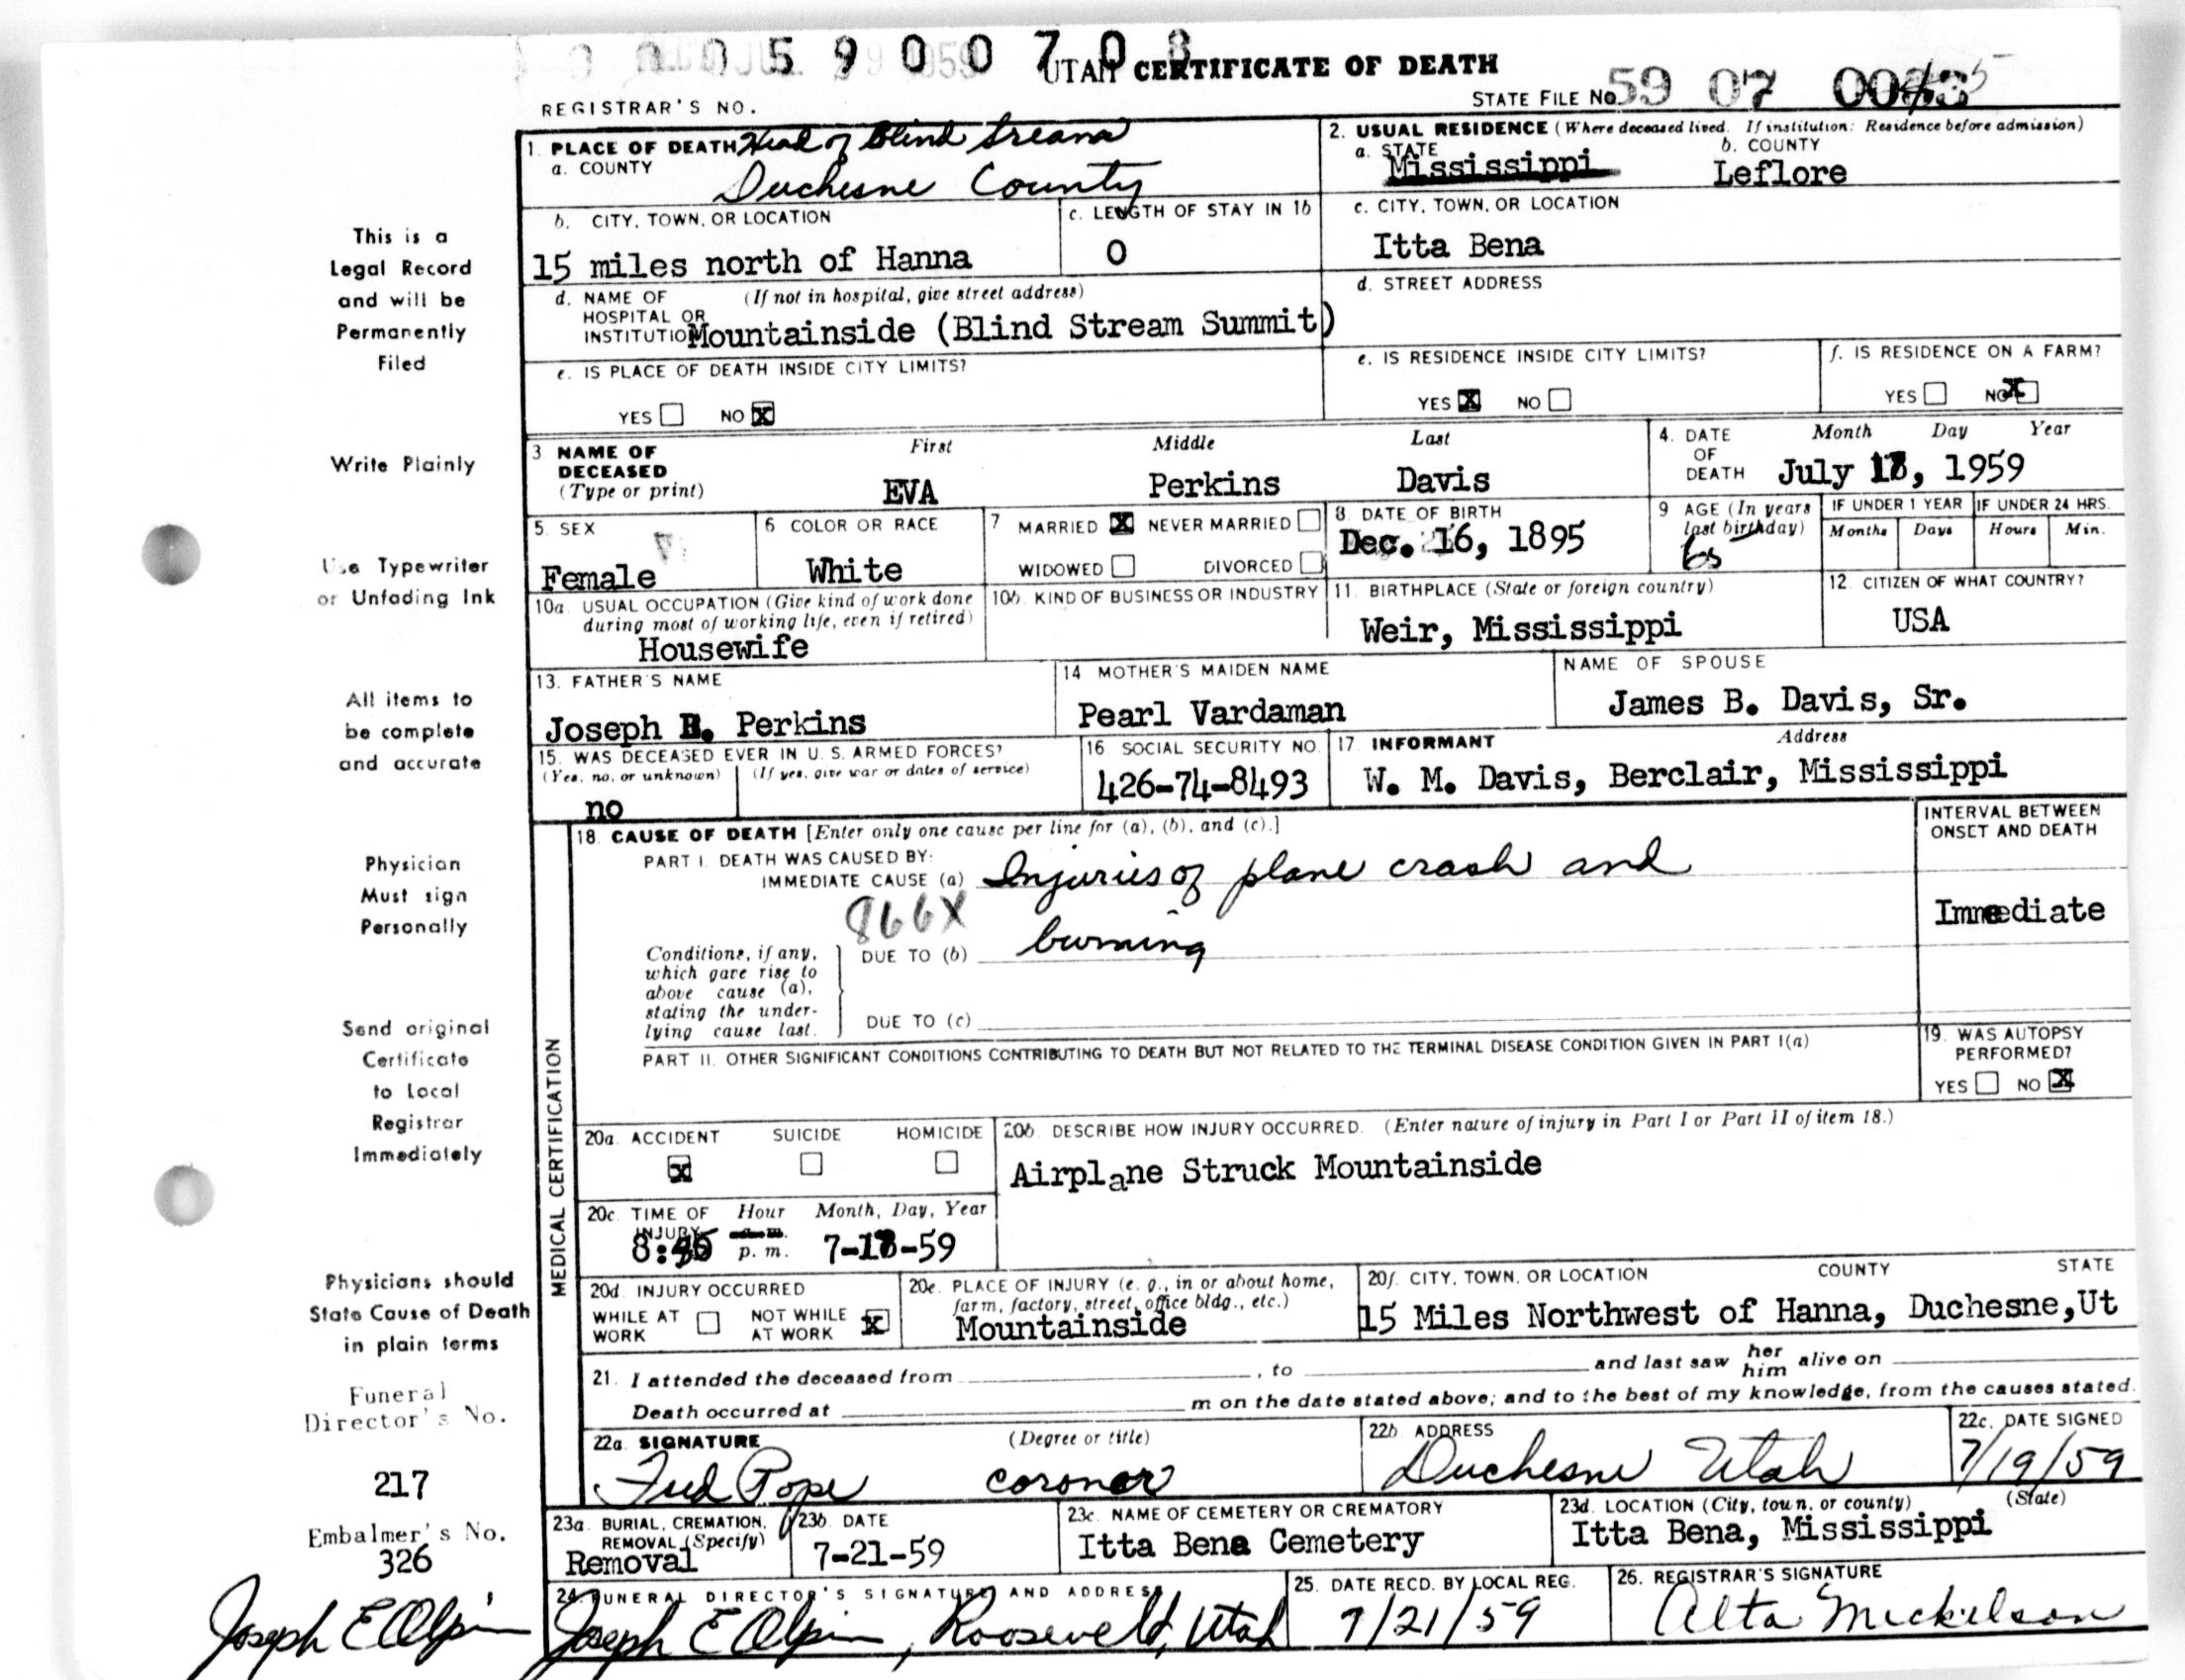 5900708
UTAH CERTIFICATE OF DEATH
REGISTRAR'S NO.
STATE FILE No. 59 07
1. PLACE OF DEATH Head of Blind Stream
a. COUNTY Duchesne County
2. USUAL RESIDENCE (Where deceased lived. If institution: Residence before admission)
a. STATE Mississippi b. COUNTY Leflore
b. CITY, TOWN, OR LOCATION
15 miles north of Hanna
c. LENGTH OF STAY IN 1b
0
c. CITY, TOWN, OR LOCATION
Itta Bena
d. NAME OF HOSPITAL OR INSTITUTION (If not in hospital, give street address)
Mountainside (Blind Stream Summit)
d. STREET ADDRESS
e. IS PLACE OF DEATH INSIDE CITY LIMITS?
YES NO X
e. IS RESIDENCE INSIDE CITY LIMITS?
YES X NO
f. IS RESIDENCE ON A FARM?
YES NO X
3 NAME OF DECEASED (Type or print)
First Middle Last
EVA Perkins Davis
4. DATE OF DEATH
Month Day Year
July , 1959
5. SEX
Female
6 COLOR OR RACE
White
7 MARRIED X NEVER MARRIED
WIDOWED DIVORCED
8. DATE OF BIRTH
Dec. 16, 1895
9 AGE (In years last birthday)
IF UNDER 1 YEAR IF UNDER 24 HRS.
Months Days Hours Min.
10a. USUAL OCCUPATION (Give kind of work done during most of working life, even if retired)
Housewife
10b. KIND OF BUSINESS OR INDUSTRY
11. BIRTHPLACE (State or foreign country)
Weir, Mississippi
12. CITIZEN OF WHAT COUNTRY?
USA
13. FATHER'S NAME
Joseph Perkins
14 MOTHER'S MAIDEN NAME
Pearl Vardaman
NAME OF SPOUSE
James B. Davis, Sr.
15. WAS DECEASED EVER IN U. S. ARMED FORCES?
(Yes, no, or unknown) (If yes, give war or dates of service)
no
16 SOCIAL SECURITY NO.
426-74-8493
17. INFORMANT Address
W. M. Davis, Berclair, Mississippi
MEDICAL CERTIFICATION
18. CAUSE OF DEATH [Enter only one cause per line for (a), (b), and (c).]
INTERVAL BETWEEN ONSET AND DEATH
PART I. DEATH WAS CAUSED BY:
IMMEDIATE CAUSE (a) Injuries of plane crash and
866X
Immediate
Conditions, if any, which gave rise to above cause (a), stating the underlying cause last.
DUE TO (b) burning
DUE TO (c)
PART II. OTHER SIGNIFICANT CONDITIONS CONTRIBUTING TO DEATH BUT NOT RELATED TO THE TERMINAL DISEASE CONDITION GIVEN IN PART I(a)
19. WAS AUTOPSY PERFORMED?
YES NO X
20a. ACCIDENT SUICIDE HOMICIDE
X
20b. DESCRIBE HOW INJURY OCCURRED. (Enter nature of injury in Part I or Part II of item 18.)
Airplane Struck Mountainside
20c. TIME OF INJURY Hour Month, Day, Year
p. m.
20d. INJURY OCCURRED
WHILE AT WORK NOT WHILE AT WORK X
20e. PLACE OF INJURY (e. g., in or about home, farm, factory, street, office bldg., etc.)
Mountainside
20f. CITY, TOWN, OR LOCATION COUNTY STATE
15 Miles Northwest of Hanna, Duchesne,Ut
21. I attended the deceased from , to and last saw her him alive on
Death occurred at m on the date stated above; and to the best of my knowledge, from the causes stated.
22a. SIGNATURE (Degree or title)
Fred Pope coroner
22b. ADDRESS
Duchesne Utah
22c. DATE SIGNED
7/19/59
23a. BURIAL, CREMATION, REMOVAL (Specify)
Removal
23b. DATE
7-21-59
23c. NAME OF CEMETERY OR CREMATORY
Itta Bena Cemetery
23d. LOCATION (City, town, or county) (State)
Itta Bena, Mississippi
24. FUNERAL DIRECTOR'S SIGNATURE AND ADDRESS
Joseph E Olpin, Roosevelt, Utah
25. DATE RECD. BY LOCAL REG.
7/21/59
26. REGISTRAR'S SIGNATURE
Alta Mickelson
This is a
Legal Record
and will be
Permanently
Filed
Write Plainly
Use Typewriter
or Unfading Ink
All items to
be complete
and accurate
Physician
Must sign
Personally
Send original
Certificate
to Local
Registrar
Immediately
Physicians should
State Cause of Death
in plain terms
Funeral
Director's No.
217
Embalmer's No.
326
Joseph E Olpin